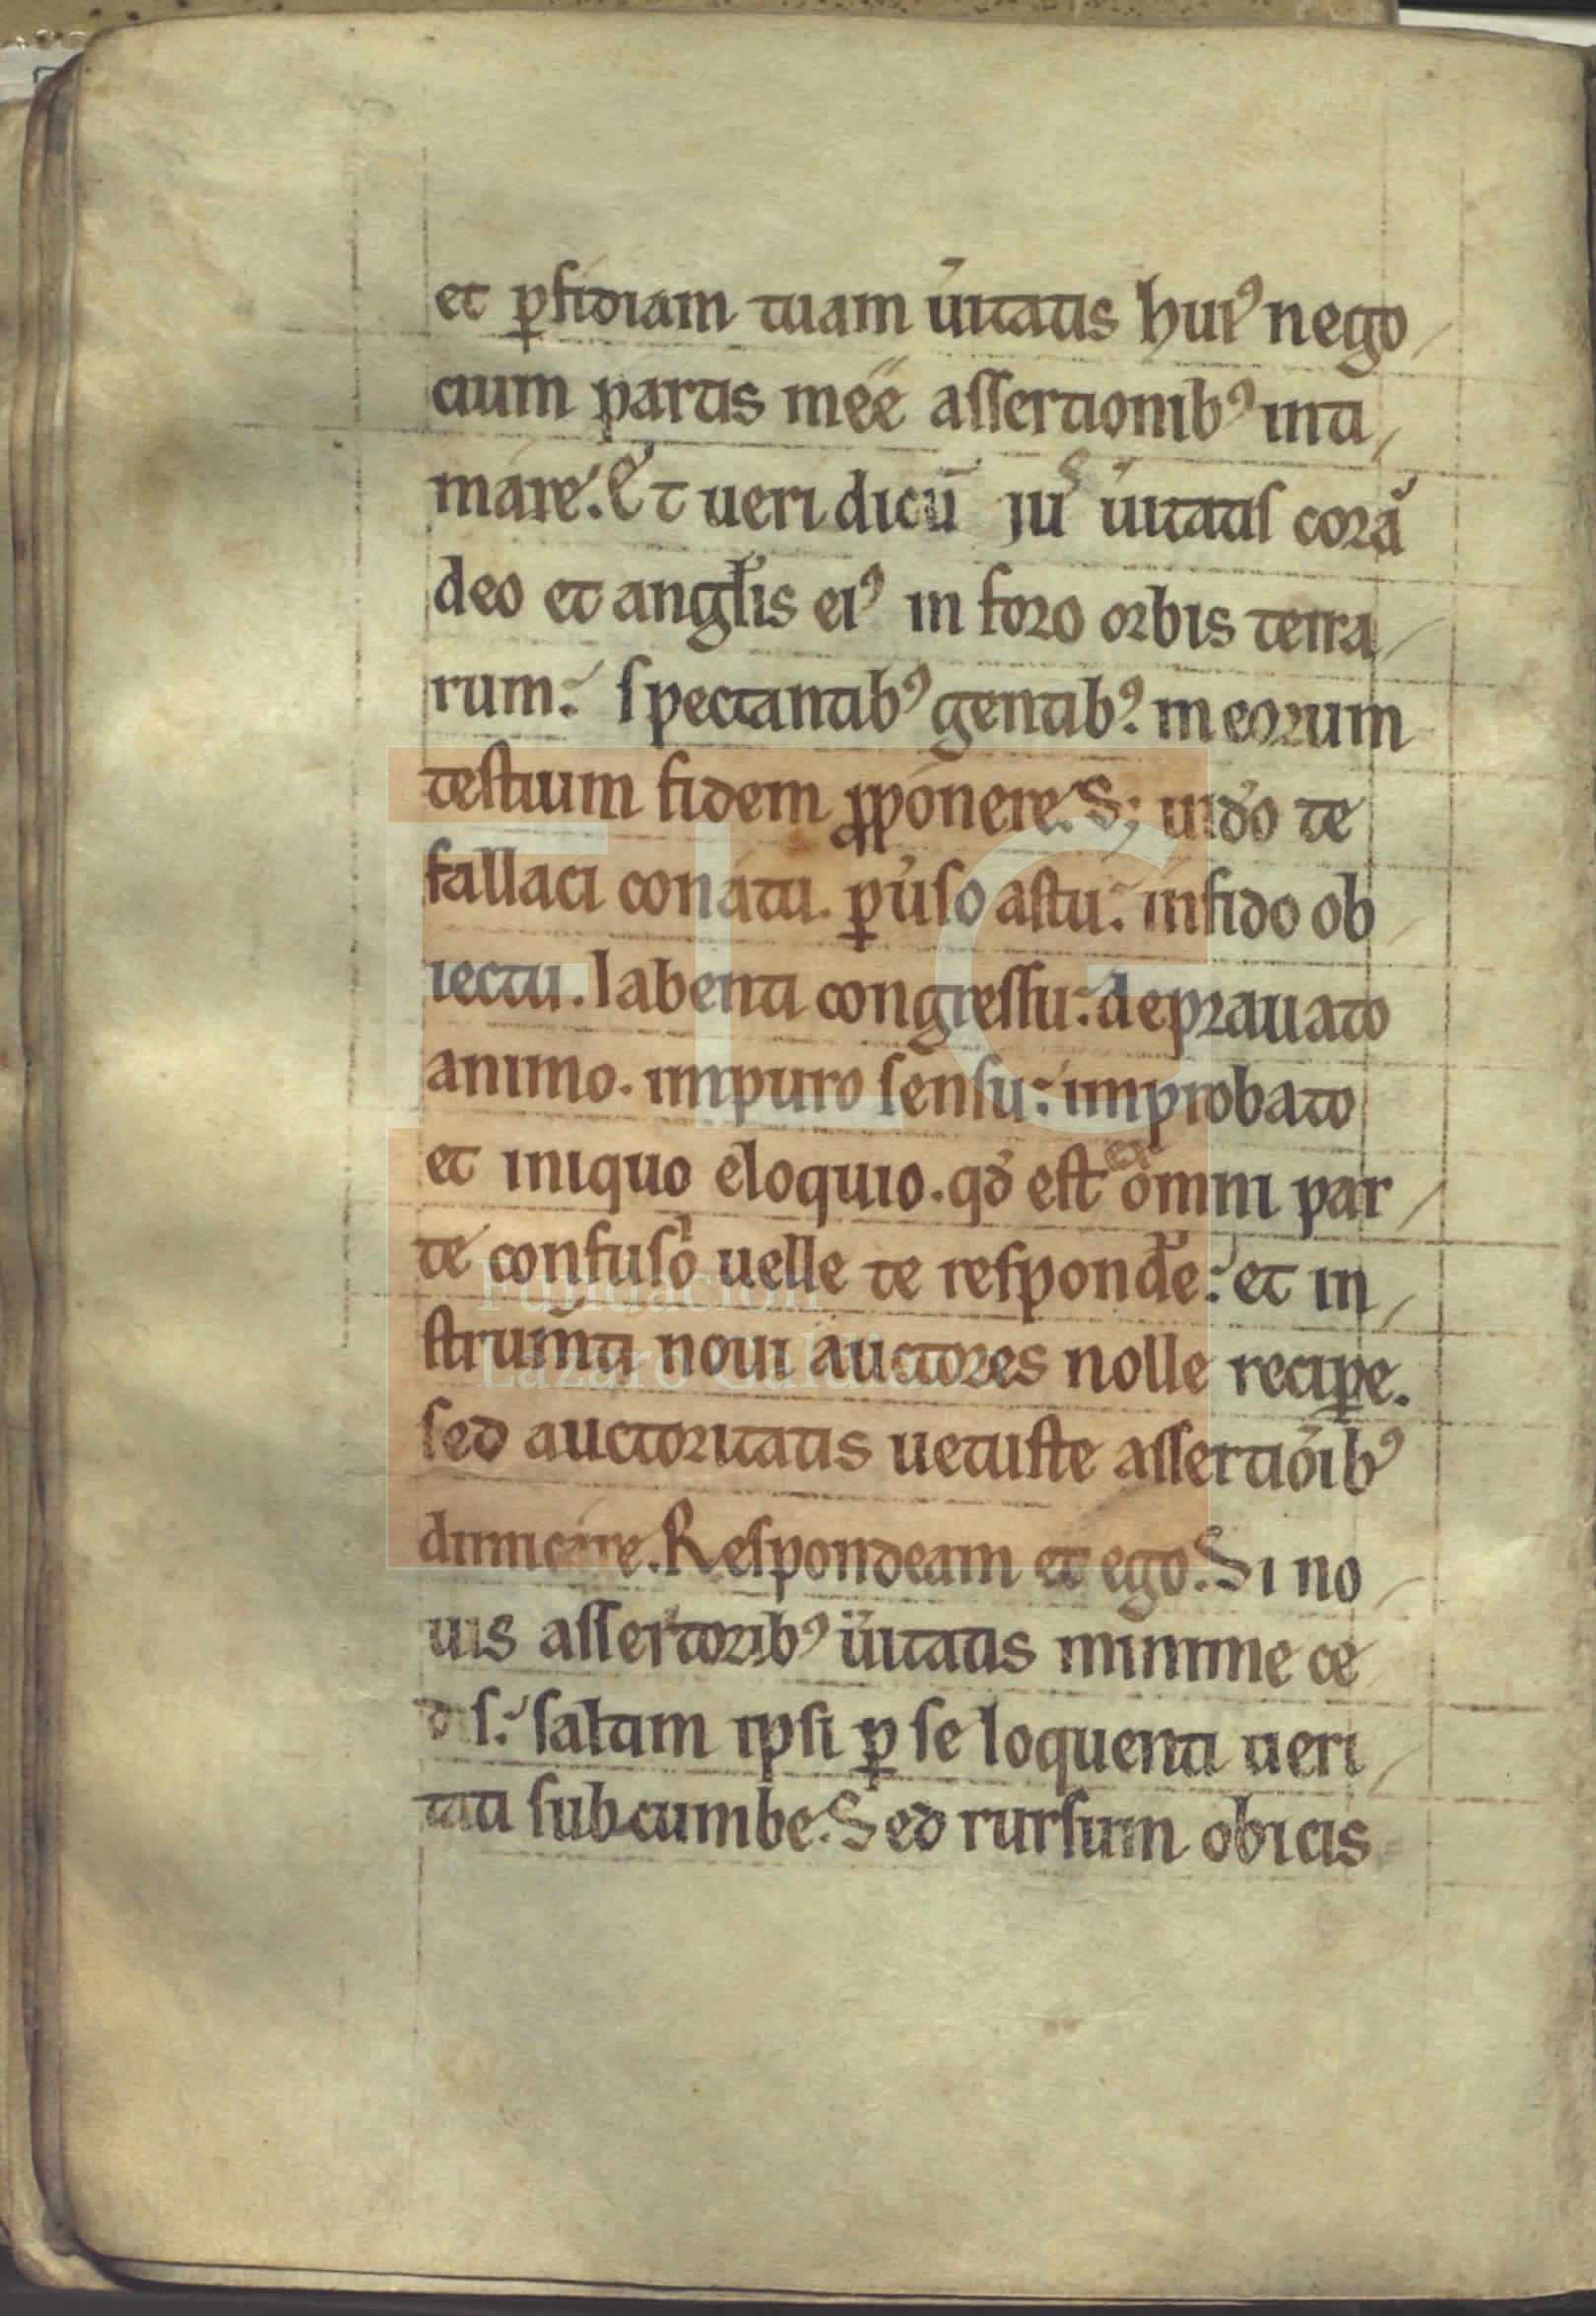 et ꝑfidiam tuam u̾itatis huiꝰ nego
cium partis meę assertionibꝰ inti
mare. Et ueridicū iuſ u̾itatiſ corā
deo et angl̾is eiꝰ in foro orbis terra
rum. ſpectantibꝰ gentibꝰ. meorum
teſtium fidem ꝓponere. S; uid̾o te
fallaci conatu. ꝑu̾ſo aſtu. infido ob
iectu. labenti congreſſu. deprauato
animo. impuro ſenſu. improbato
et iniquo eloquio. qd̾ eſt ex omni par
te confuſo uelle te reſpond̾e. et in
ſtrum̄ti noui auctores nolle reciꝑe.
ſed auctoritatis uetuſte aſſertiōibꝰ
dimicare. Reſpondeam et ego. Si no
uis aſſertoribꝰ u̾itatis minime ce
diſ. ſaltim ipſi ꝑ ſe loquenti ueri
tati ſubcumbe. Sed rurſum obicis
FLG
Fundación
Lázaro Galdiano